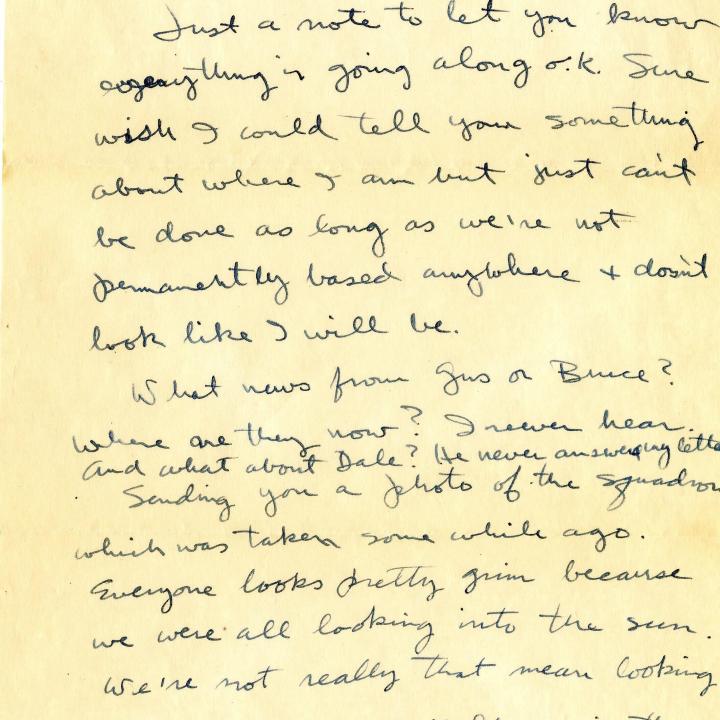 Just a note to let you know
everything's going along o.k. Sure
wish I could tell you something
about where I am but just can't
be done as long as we're not
permanently based anywhere + doesn't
look like I will be.
What news from Gus or Bruce?
Where are they now? I never hear.
And what about Dale? He never answers my lette
Sending you a photo of the squadron
which was taken some while ago.
Everyone looks pretty grim because
we were all looking into the sun.
We're not really that mean looking